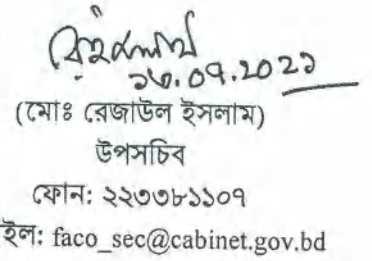 ১৩.০৭.২০২১
(মোঃ রেজাউল ইসলাম)
উপসচিব
ফোন: ২২৩৩৮১১০৭
ইল: faco_sec@cabinet.gov.bd